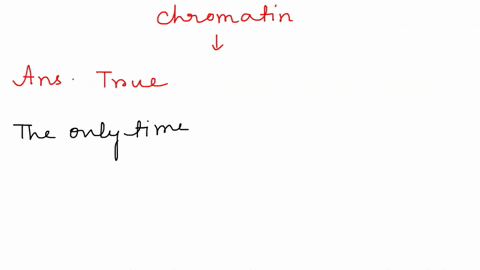 chromatin
↓
Ans. True
The only time